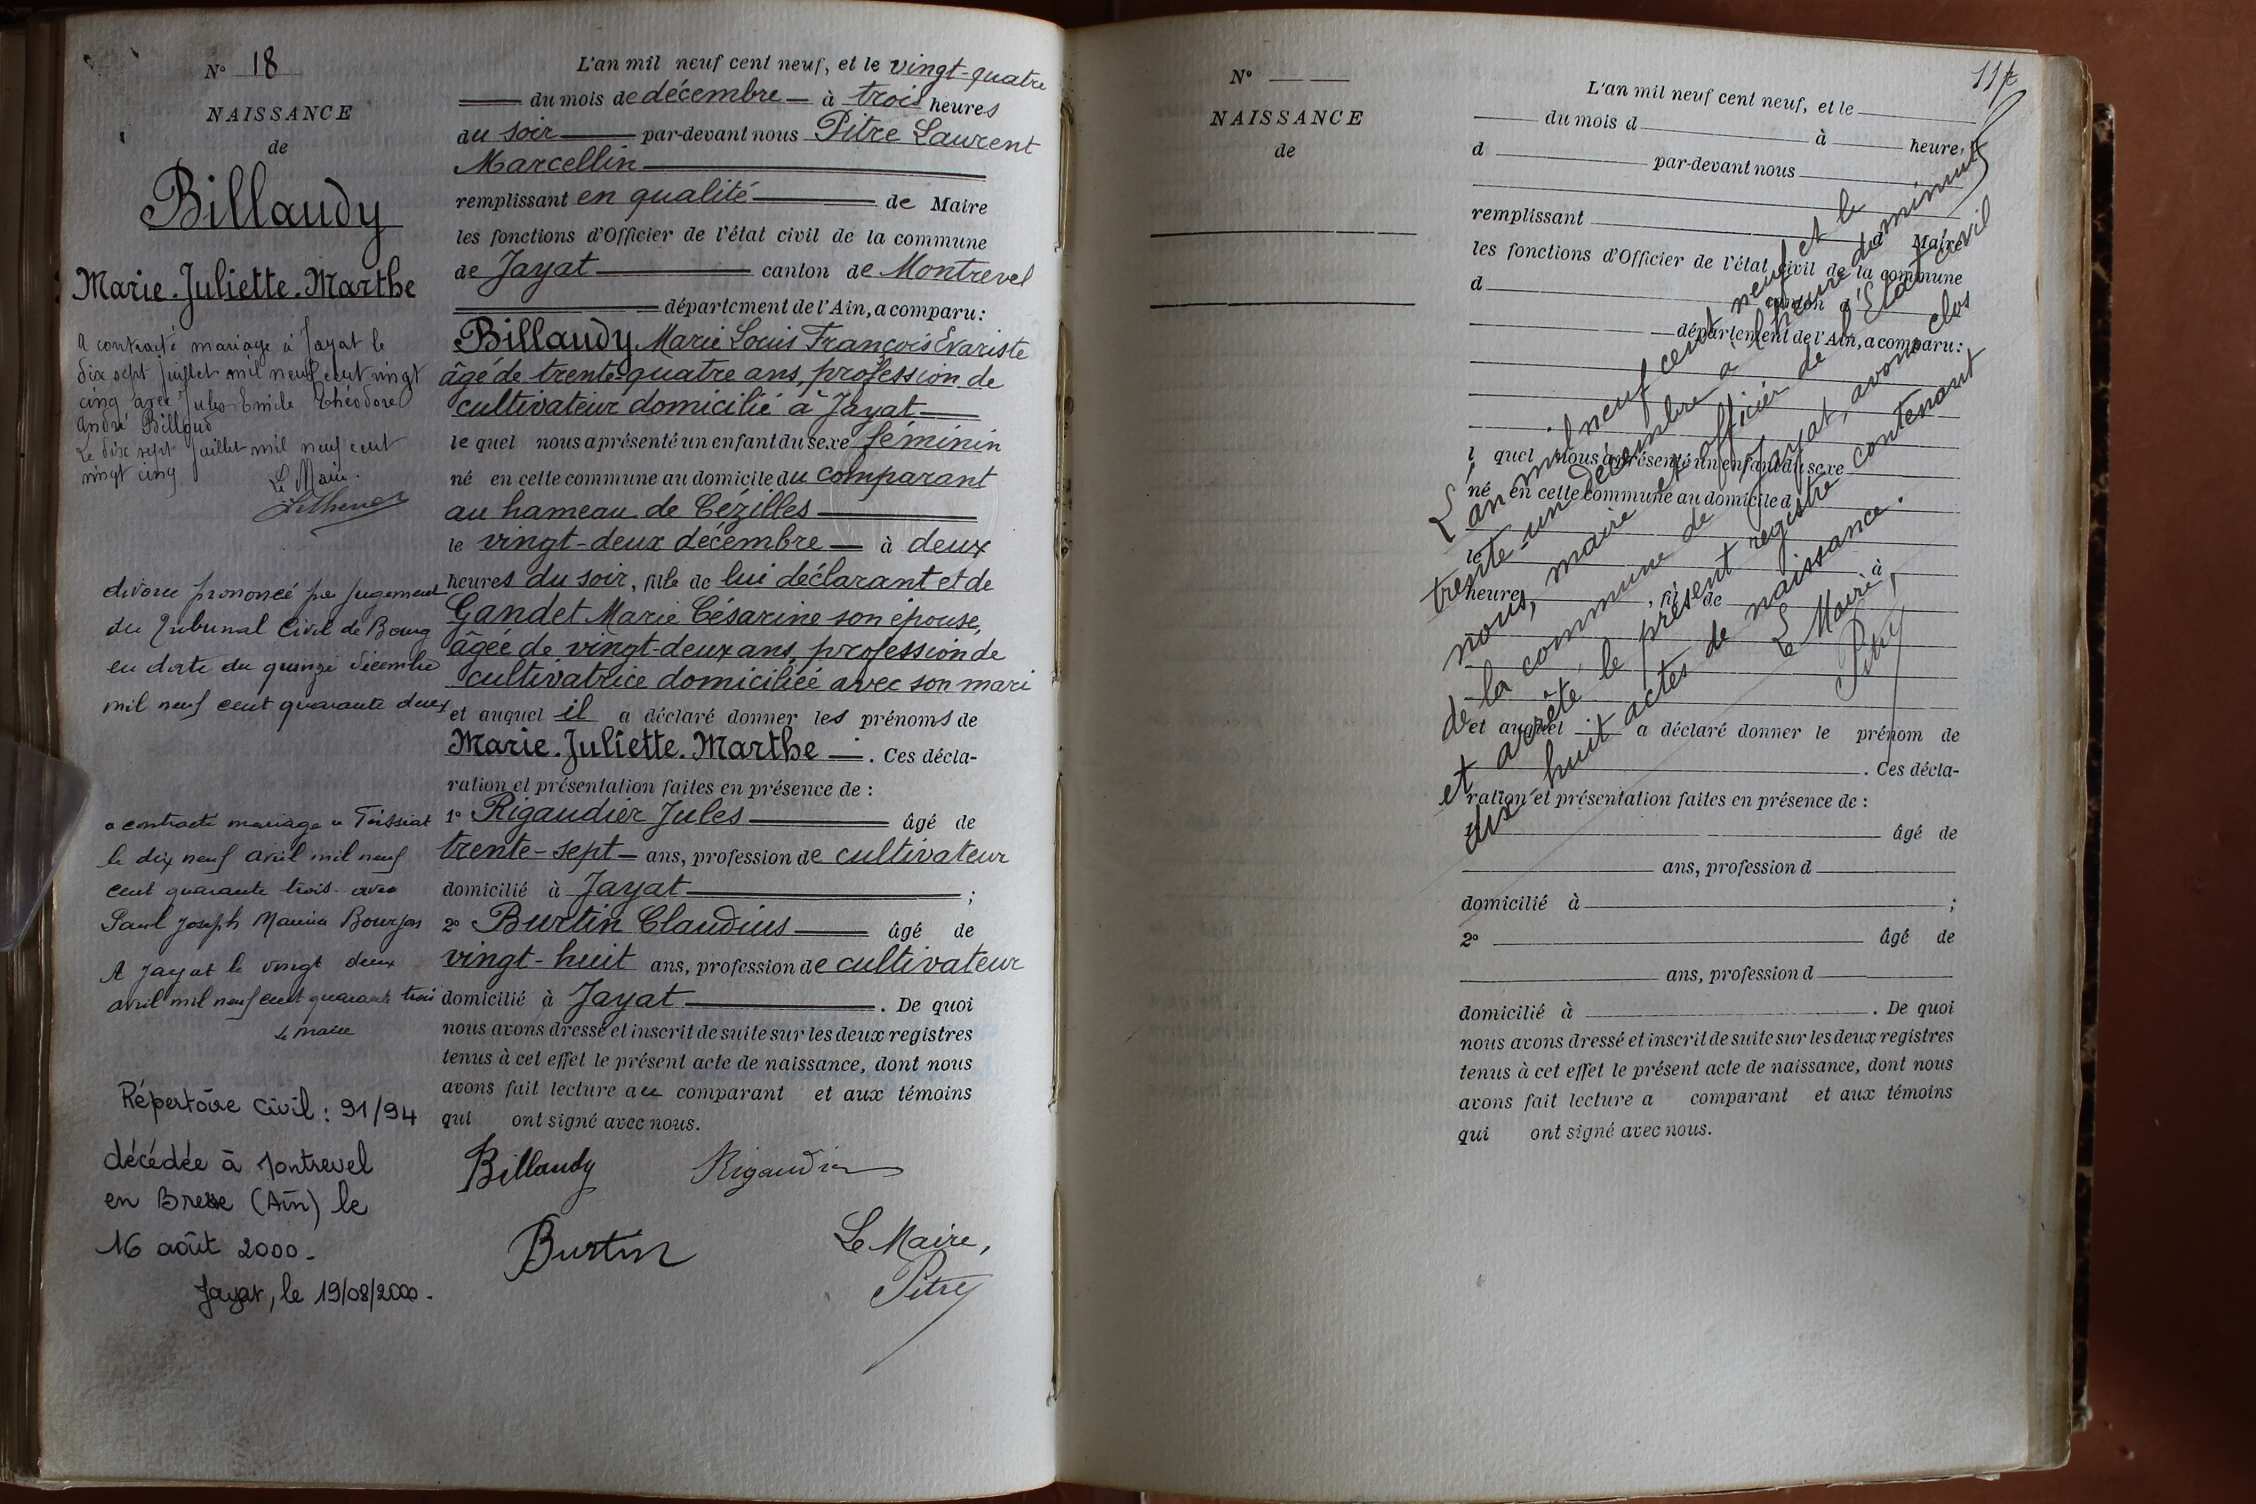 N° 18
NAISSANCE
de
Billaudy
Marie-Juliette-Marthe
A contracté mariage à Jayat le
dix sept juillet mil neuf cent vingt
cinq avec Jules Emile Théodore
André Billoud
Le dix sept juillet mil neuf cent
vingt cinq
Le Maire.
divorce prononcé par jugement
du Tribunal Civil de Bourg
en date du quinze décembre
mil neuf cent quarante deux
a contracté mariage à
le dix neuf avril mil neuf
cent quarante trois avec
Paul Joseph Maurice Bourjon
A Jayat le vingt deux
avril mil neuf cent quarante trois
Le Maire
Répertoire civil : 91/94
décédée à Montrevel
en Bresse (Ain) le
16 août 2000.
Jayat, le 19/08/2000.
L'an mil neuf cent neuf, et le vingt-quatre
du mois de décembre à trois heures
du soir par-devant nous Pitre Laurent
Marcellin
remplissant en qualité de Maire
les fonctions d'Officier de l'état civil de la commune
de Jayat canton de Montrevel
département de l'Ain, a comparu :
Billaudy Marie Louis François Evariste
âgé de trente-quatre ans, profession de
cultivateur domicilié à Jayat
lequel nous a présenté un enfant du sexe féminin
né en cette commune au domicile du comparant
au hameau de Cézilles
le vingt-deux décembre à deux
heures du soir, fille de lui déclarant et de
Gandet Marie Césarine son épouse,
âgée de vingt-deux ans, profession de
cultivatrice domiciliée avec son mari
et auquel il a déclaré donner les prénoms de
Marie-Juliette-Marthe . Ces décla-
ration et présentation faites en présence de :
1° Rigaudier Jules âgé de
trente-sept ans, profession de cultivateur
domicilié à Jayat ;
2° Burtin Claudius âgé de
vingt-huit ans, profession de cultivateur
domicilié à Jayat . De quoi
nous avons dressé et inscrit de suite sur les deux registres
tenus à cet effet le présent acte de naissance, dont nous
avons fait lecture au comparant et aux témoins
qui ont signé avec nous.
Billaudy Rigaudier
Burtin Le Maire,
Pitre
N°
NAISSANCE
de
L'an mil neuf cent neuf, et le
du mois d à heure,
d par-devant nous
remplissant d Maire
les fonctions d'Officier de l'état civil de la commune
d canton d
département de l'Ain, a comparu :
l quel nous a présenté un enfant du sexe
né en cette commune au domicile d
le à
heure , fi de
et auquel a déclaré donner le prénom de
. Ces décla-
ration et présentation faites en présence de :
âgé de
ans, profession d
domicilié à ;
2° âgé de
ans, profession d
domicilié à . De quoi
nous avons dressé et inscrit de suite sur les deux registres
tenus à cet effet le présent acte de naissance, dont nous
avons fait lecture a comparant et aux témoins
qui ont signé avec nous.
L'an mil neuf cent neuf et le
trente-un décembre à l'heure de minuit
nous, maire et officier de l'Etat civil
de la commune de Jayat, avons clos
et arrêté le présent registre contenant
dix huit actes de naissance.
Le Maire,
Pitre